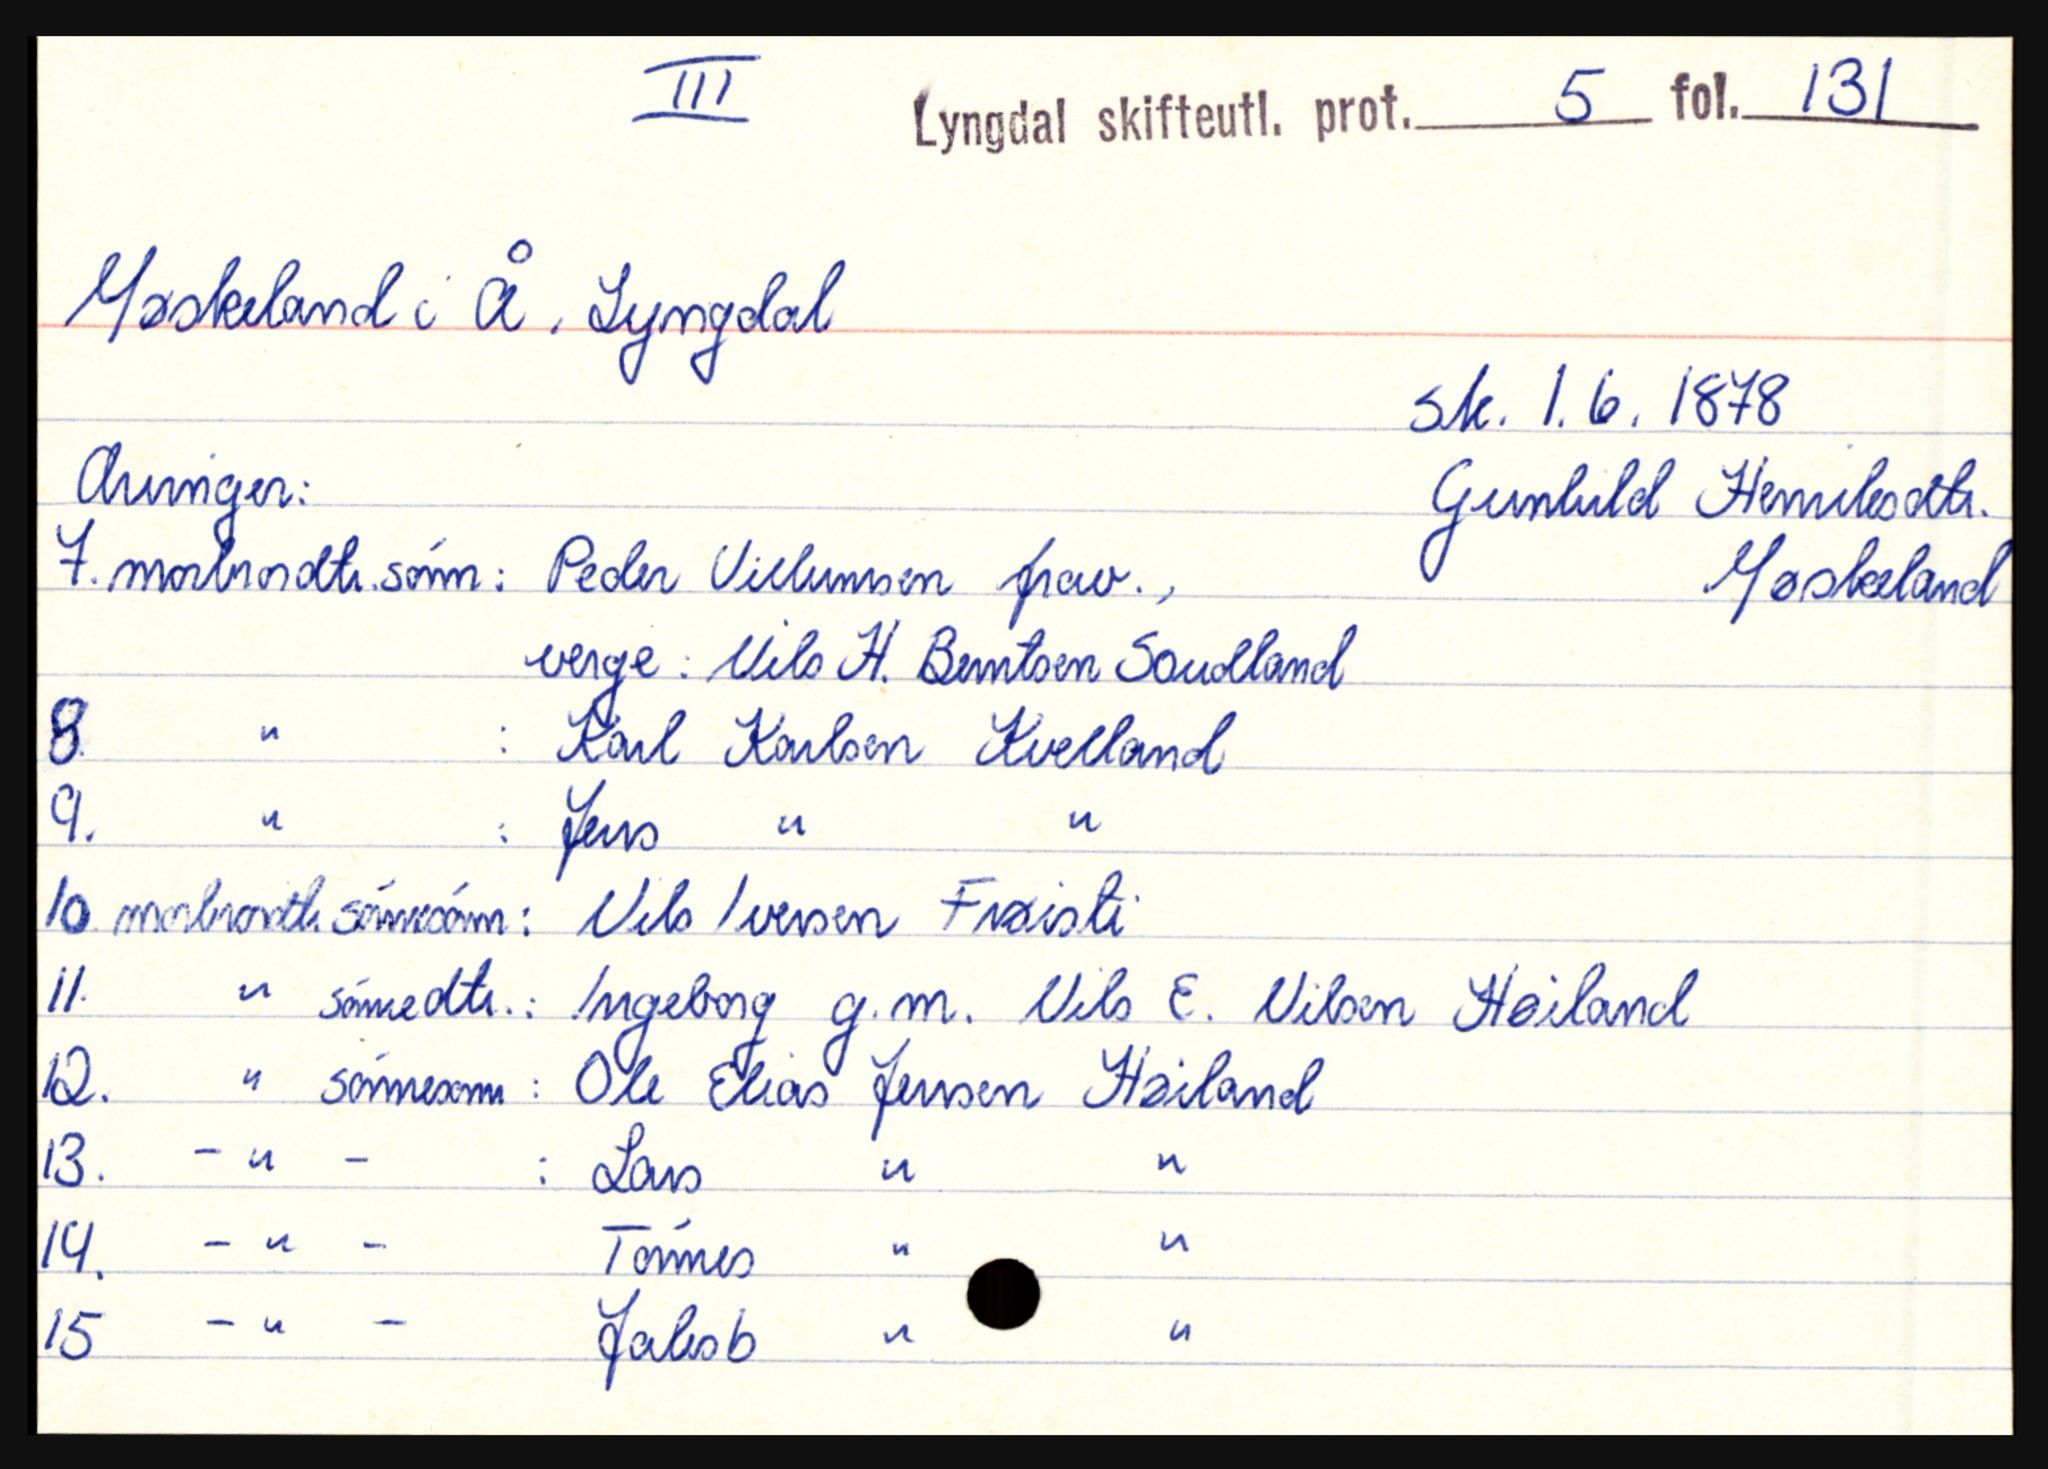 III
Lyngdal skifteutl. prot. 5 fol. 131
Møskeland i Å, Lyngdal
sk. 1.6.1878
Arvinger:
Gunhild Henriksdtr.
7. morbrordtr. sønn: Peder Villumsen frav.,
Møskeland
verge: Nils H. Berntsen Soudland
8. " : Karl Karlsen Kvelland
9. " : Jens " "
10 morbrordtr. sønnesønn: Nils Iversen Frøisti
11. " sønnedtr.: Ingeborg g.m. Nils E. Nilsen Høiland
12. " sønnesønn: Ole Elias Jensen Høiland
13. - " - : Lars " "
14. - " - Tønnes " "
15 - " - Jakob " "